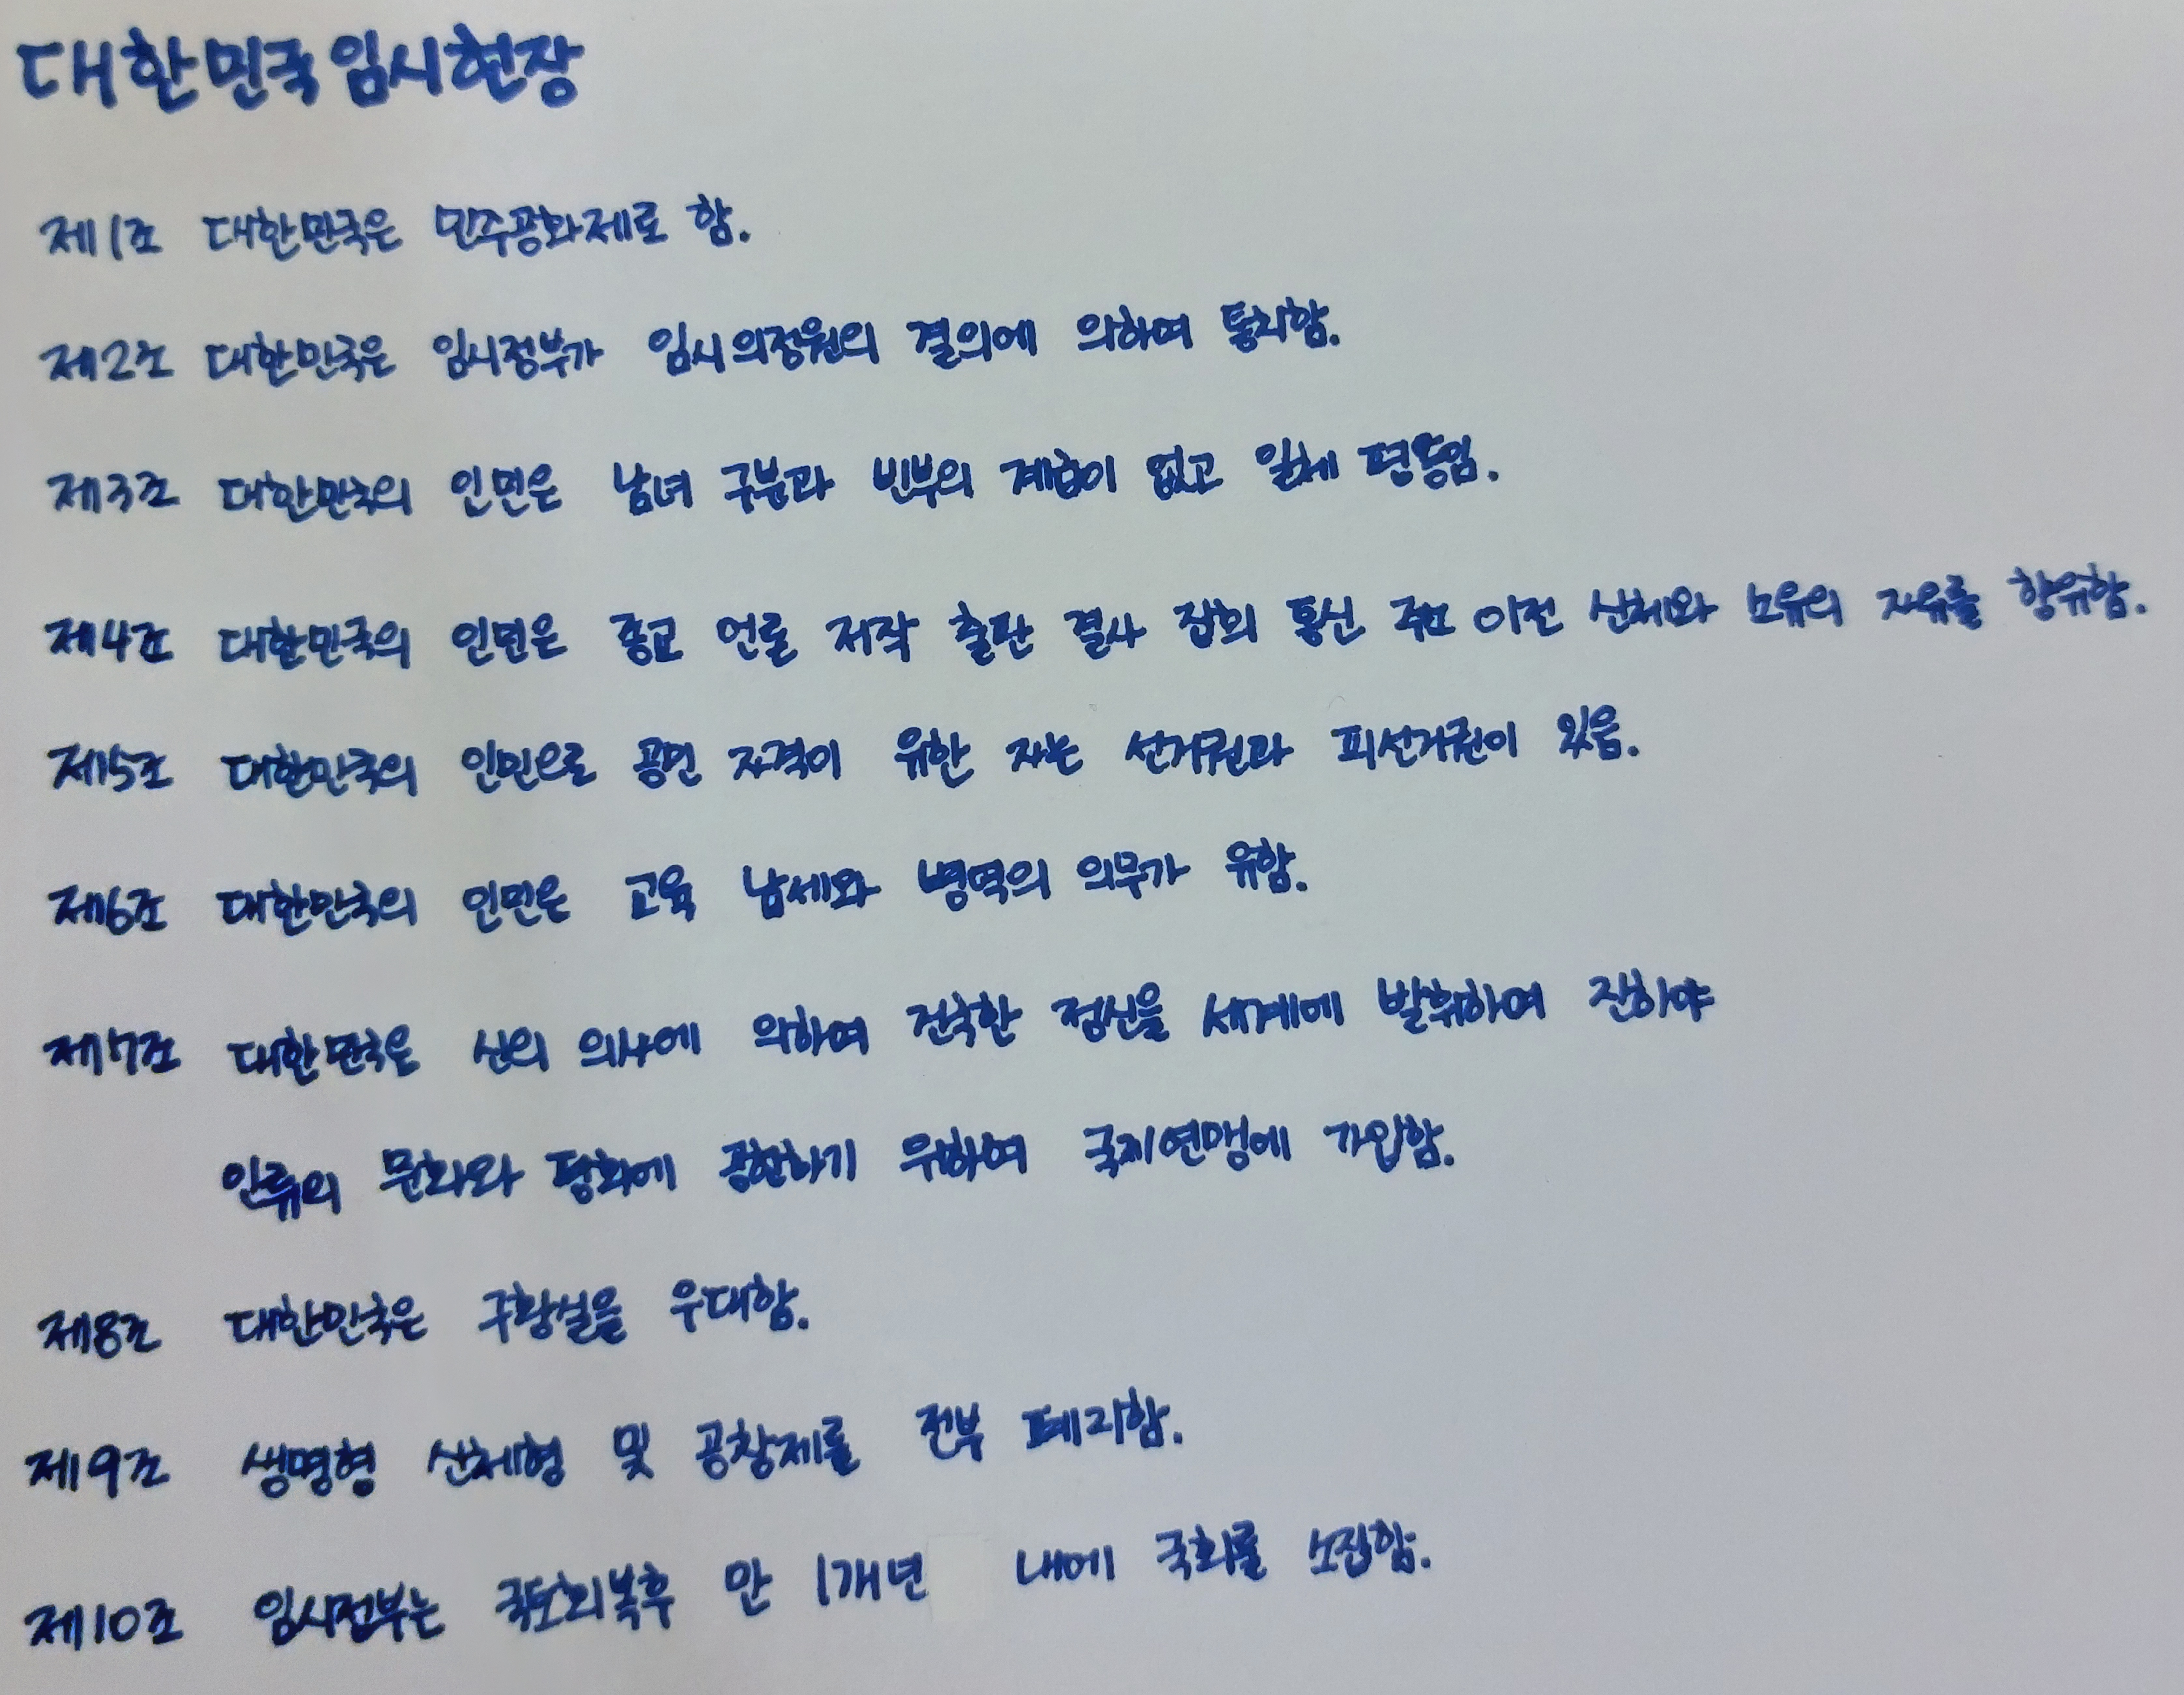 대한민국임시헌장
제1조 대한민국은 민주공화제로 함.
제2조 대한민국은 임시정부가 임시의정원의 결의에 의하여 통치함.
제3조 대한민국의 인민은 남녀 구분과 빈부의 계급이 없고 일체 평등임.
제4조 대한민국의 인민은 종교 언론 저작 출판 결사 집회 통신 주소 이전 신체와 소유의 자유를 향유함.
제5조 대한민국의 인민으로 공민 자격이 유한 자는 선거권과 피선거권이 있음.
제6조 대한민국의 인민은 교육 납세와 병역의 의무가 유함.
제7조 대한민국은 신의 의사에 의하여 건국한 정신을 세계에 발휘하여 진하야
인류의 문화와 평화에 공헌하기 위하여 국제연맹에 가입함.
제8조 대한민국은 구황실을 우대함.
제9조 생명형 신체형 및 공창제를 전부 폐지함.
제10조 임시정부는 국토회복후 만 1개년 내에 국회를 소집함.